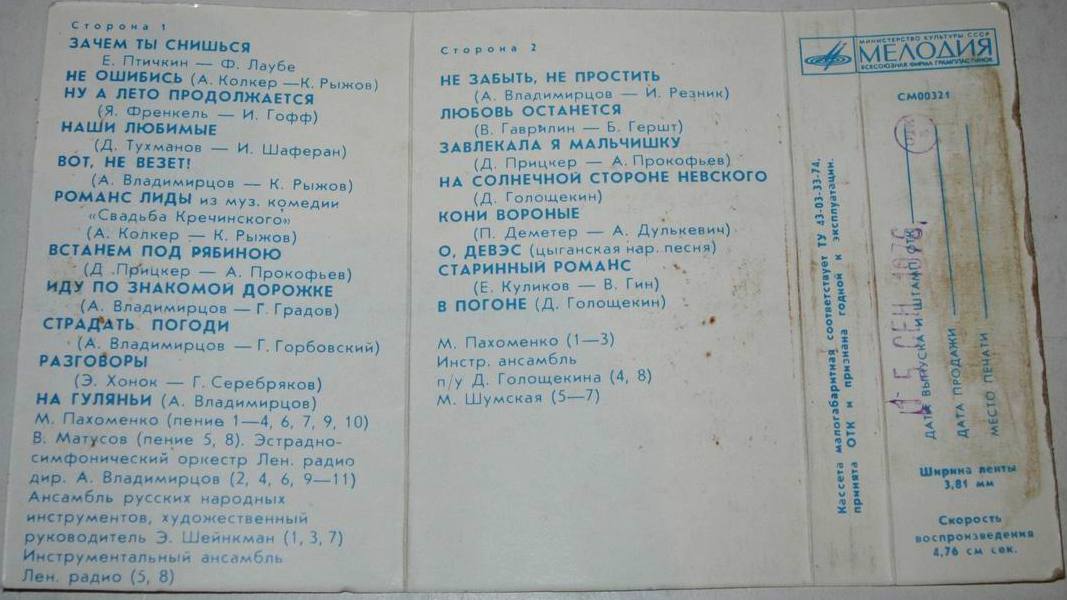 Сторона 1
ЗАЧЕМ ТЫ СНИШЬСЯ
Е. Птичкин — Ф. Лаубе
НЕ ОШИБИСЬ (А. Колкер —К. Рыжов)
НУ А ЛЕТО ПРОДОЛЖАЕТСЯ
(Я. Френкель — И. Гофф)
НАШИ ЛЮБИМЫЕ
(Д. Тухманов — И. Шаферан)
ВОТ, НЕ ВЕЗЕТ!
(А. Владимирцов — К. Рыжов)
РОМАНС ЛИДЫ из муз. комедии
«Свадьба Кречинского»
(А. Колкер — К. Рыжов)
ВСТАНЕМ ПОД РЯБИНОЮ
(Д .Прицкер — А. Прокофьев)
ИДУ ПО ЗНАКОМОЙ ДОРОЖКЕ
(А. Владимирцов — Г. Градов)
СТРАДАТЬ ПОГОДИ
(А. Владимирцов — Г. Горбовский)
РАЗГОВОРЫ
(Э. Хонок — Г. Серебряков)
НА ГУЛЯНЬИ (А. Владимирцов)
М. Пахоменко (пение 1—4, 6, 7, 9, 10)
В. Матусов (пение 5, 8). Эстрадно-
симфонический оркестр Лен. радио
дир. А. Владимирцов (2, 4, 6, 9—11)
Ансамбль русских народных
инструментов, художественный
руководитель Э. Шейнкман (1, 3, 7)
Инструментальный ансамбль
Лен. радио (5, 8)
Сторона 2
НЕ ЗАБЫТЬ, НЕ ПРОСТИТЬ
(А. Владимирцов — И. Резник)
ЛЮБОВЬ ОСТАНЕТСЯ
(В. Гаврилин — Б. Гершт)
ЗАВЛЕКАЛА Я МАЛЬЧИШКУ
(Д. Прицкер — А. Прокофьев)
НА СОЛНЕЧНОЙ СТОРОНЕ НЕВСКОГО
(Д. Голощекин)
КОНИ ВОРОНЫЕ
(П. Деметер — А. Дулькевич)
О, ДЕВЭС (цыганская нар. песня)
СТАРИННЫЙ РОМАНС
(Е. Куликов — В. Гин)
В ПОГОНЕ (Д. Голощекин)
М. Пахоменко (1—3)
Инстр. ансамбль
п/у Д. Голощекина (4, 8)
М. Шумская (5—7)
Кассета малогабаритная соответствует ТУ 43-03-33-74,
принята ОТК и признана годной к эксплуатации.
МИНИСТЕРСТВО КУЛЬТУРЫ СССР
МЕЛОДИЯ
ВСЕСОЮЗНАЯ ФИРМА ГРАМПЛАСТИНОК
СМ00321
ДАТА ВЫПУСКА И ШТАМП ОТК
ДАТА ПРОДАЖИ
МЕСТО ПЕЧАТИ
Ширина ленты
3,81 мм
Скорость
воспроизведения
4,76 см сек.